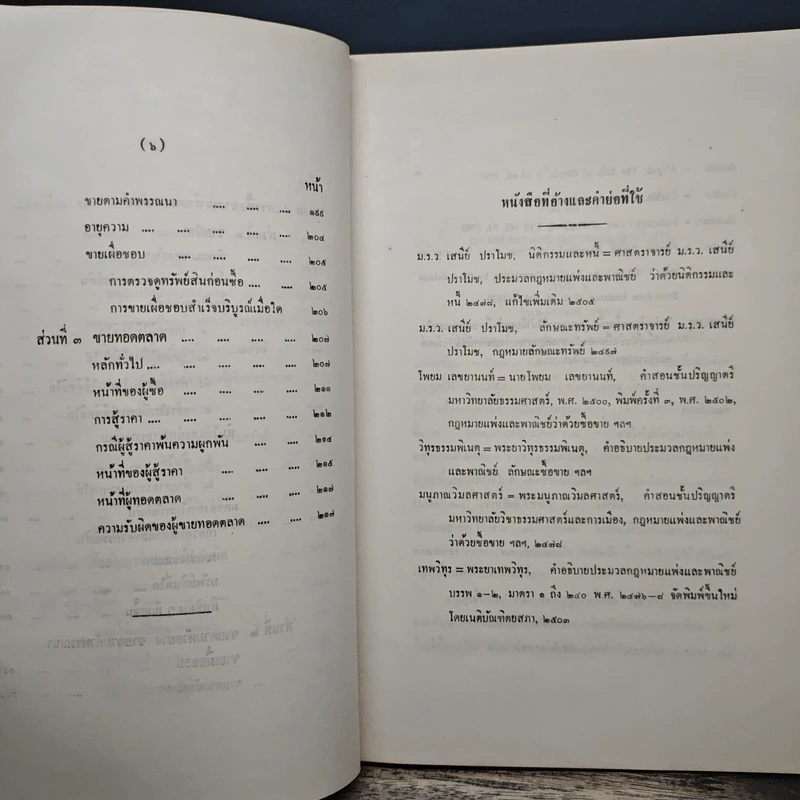 (๖)
หน้า
ขายตามคำพรรณนา .... .... .... ๑๙๙
อายุความ .... .... .... .... ๒๐๔
ขายเผื่อชอบ .... .... .... ๒๐๕
การตรวจดูทรัพย์สินก่อนซื้อ .... .... ๒๐๕
การขายเผื่อชอบสำเร็จบริบูรณ์เมื่อใด ๒๐๖
ส่วนที่ ๓ ขายทอดตลาด .... .... .... ๒๐๗
หลักทั่วไป .... .... .... .... ๒๐๗
หน้าที่ของผู้ซื้อ .... .... .... ๒๑๑
การสู้ราคา .... .... .... .... ๒๑๒
กรณีผู้สู้ราคาพ้นความผูกพัน .... .... ๒๑๔
หน้าที่ของผู้สู้ราคา .... .... .... ๒๑๕
หน้าที่ผู้ทอดตลาด .... .... .... ๒๑๗
ความรับผิดของผู้ขายทอดตลาด .... .... ๒๑๗
หนังสือที่อ้างและคำย่อที่ใช้
ม.ร.ว. เสนีย์ ปราโมช, นิติกรรมและหนี้ = ศาสตราจารย์ ม.ร.ว. เสนีย์
ปราโมช, ประมวลกฎหมายแพ่งและพาณิชย์ ว่าด้วยนิติกรรมและ
หนี้ ๒๔๗๘, แก้ไขเพิ่มเติม ๒๕๐๕
ม.ร.ว. เสนีย์ ปราโมช, ลักษณะทรัพย์ = ศาสตราจารย์ ม.ร.ว. เสนีย์
ปราโมช, กฎหมายลักษณะทรัพย์ ๒๔๙๗
โพยม เลขยานนท์ = นายโพยม เลขยานนท์, คำสอนชั้นปริญญาตรี
มหาวิทยาลัยธรรมศาสตร์, พ.ศ. ๒๕๐๐, พิมพ์ครั้งที่ ๓, พ.ศ. ๒๕๐๒,
กฎหมายแพ่งและพาณิชย์ว่าด้วยซื้อขาย ฯลฯ
วิทุรธรรมพิเนตุ = พระยาวิทุรธรรมพิเนตุ, คำอธิบายประมวลกฎหมายแพ่ง
และพาณิชย์ ลักษณะซื้อขาย ฯลฯ
มนูภาณวิมลศาสตร์ = พระมนูภาณวิมลศาสตร์, คำสอนชั้นปริญญาตรี
มหาวิทยาลัยวิชาธรรมศาสตร์และการเมือง, กฎหมายแพ่งและพาณิชย์
ว่าด้วยซื้อขาย ฯลฯ, ๒๔๗๘
เทพวิทุร = พระยาเทพวิทุร, คำอธิบายประมวลกฎหมายแพ่งและพาณิชย์
บรรพ ๑-๒, มาตรา ๑ ถึง ๒๔๐ พ.ศ. ๒๔๗๖-๘ จัดพิมพ์ขึ้นใหม่
โดยเนติบัณฑิตยสภา, ๒๕๐๓